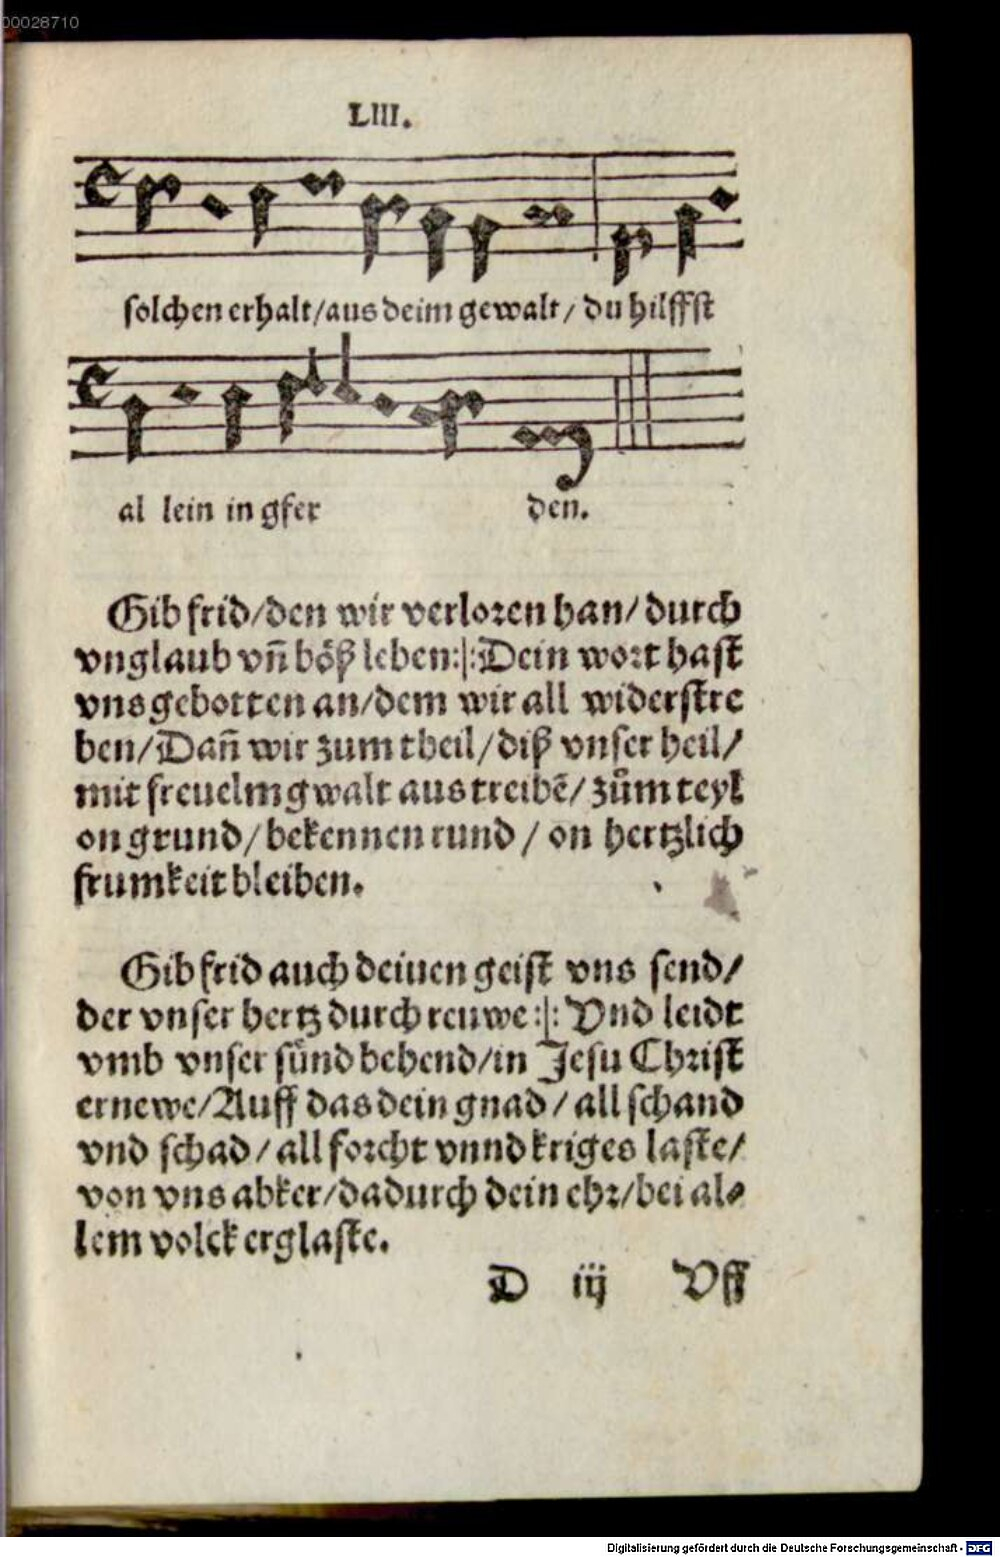 00028710
LIII.
solchen erhalt/aus deim gewalt/ du hilffst
al lein in gfer den.
Gib frid/den wir verloren han/ durch
vnglaub vñ böß leben:|:Dein wort hast
vns gebotten an/dem wir all widerstre
ben/Dañ wir zum theil/diß vnser heil/
mit freuelm gwalt austreibẽ/ zům teyl
on grund/bekennen rund / on hertzlich
frumkeit bleiben.
Gib frid auch deiuen geist vns send/
der vnser hertz durch reuwe:|: Vnd leidt
vmb vnser sünd behend/in Jesu Christ
ernewe/Auff das dein gnad / all schand
vnd schad / all forcht vnnd kriges laste/
von vns abker/dadurch dein ehr/bei al⸗
lem volck erglaste.
D iij Vff
Digitalisierung gefördert durch die Deutsche Forschungsgemeinschaft - DFG